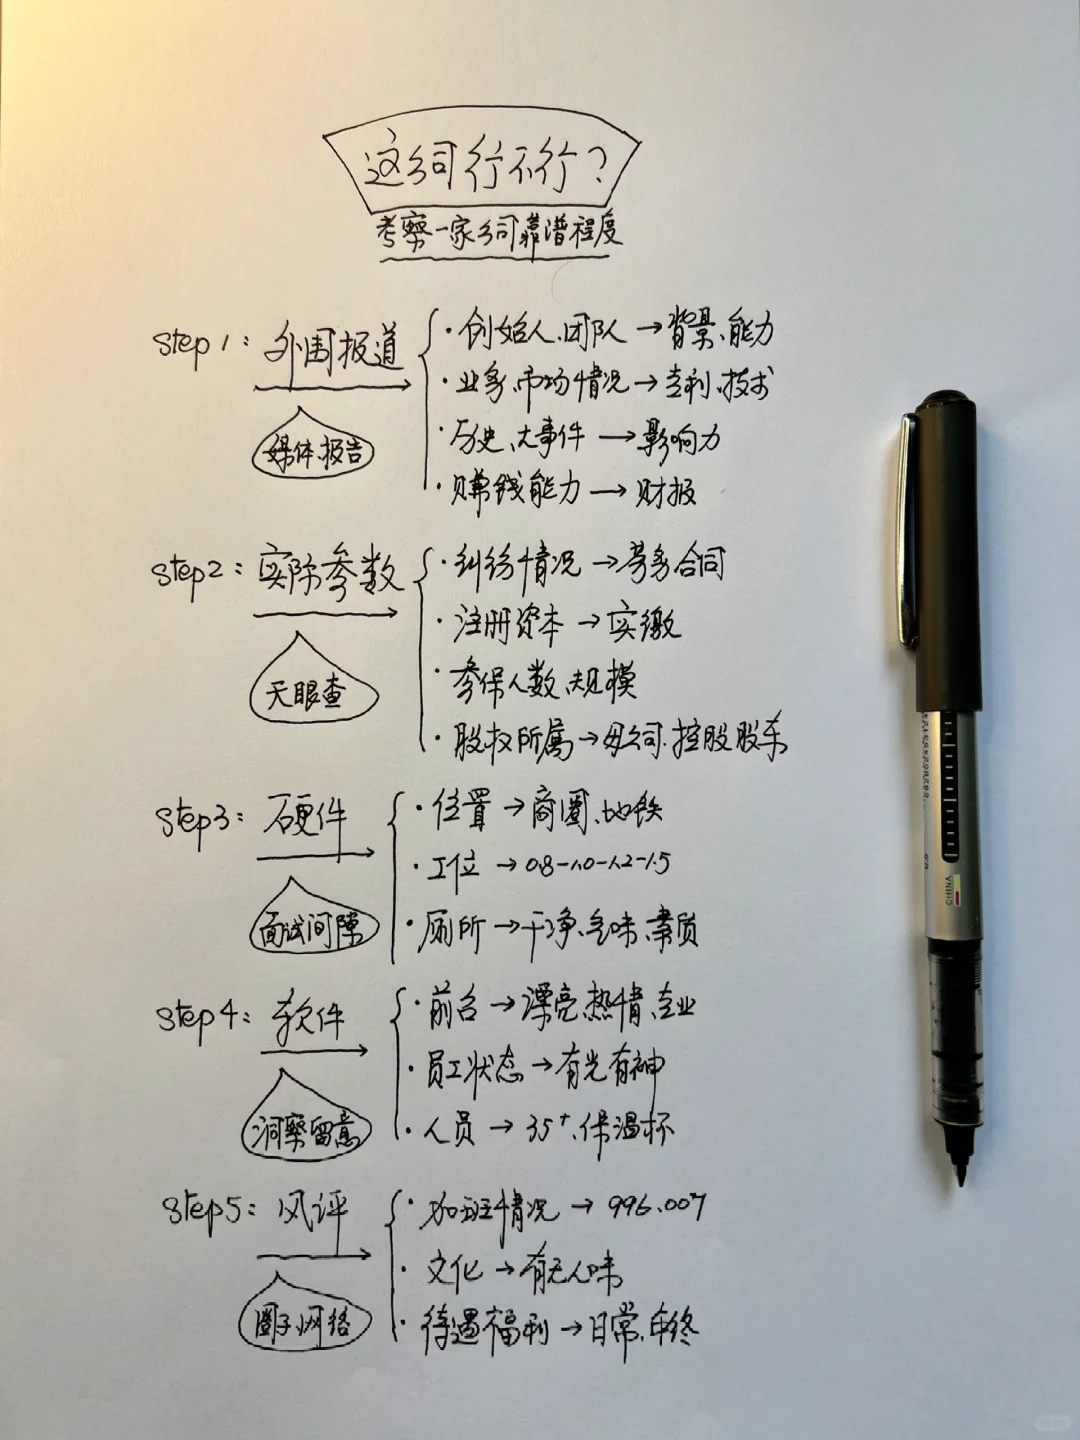 这公司行不行?
考察一家公司靠谱程度
Step 1: 外围报道
媒体、报告
· 创始人、团队 → 背景、能力
· 业务、市场情况 → 专利、技术
· 历史、大事件 → 影响力
· 赚钱能力 → 财报
Step2: 实际参数
天眼查
· 纠纷情况 → 劳务合同
· 注册资本 → 实缴
· 参保人数、规模
· 股权所属 → 母公司、控股股东
Step3: 硬件
面试间隙
· 位置 → 商圈、地铁
· 工位 → 0.8-1.0-1.2-1.5
· 厕所 → 干净、气味、素质
Step4: 软件
洞察留意
· 前台 → 漂亮、热情、专业
· 员工状态 → 有光有神
· 人员 → 35+、保温杯
Step5: 风评
圈子、网络
· 加班情况 → 996、007
· 文化 → 有无人味
· 待遇福利 → 日常、年终
CHINA